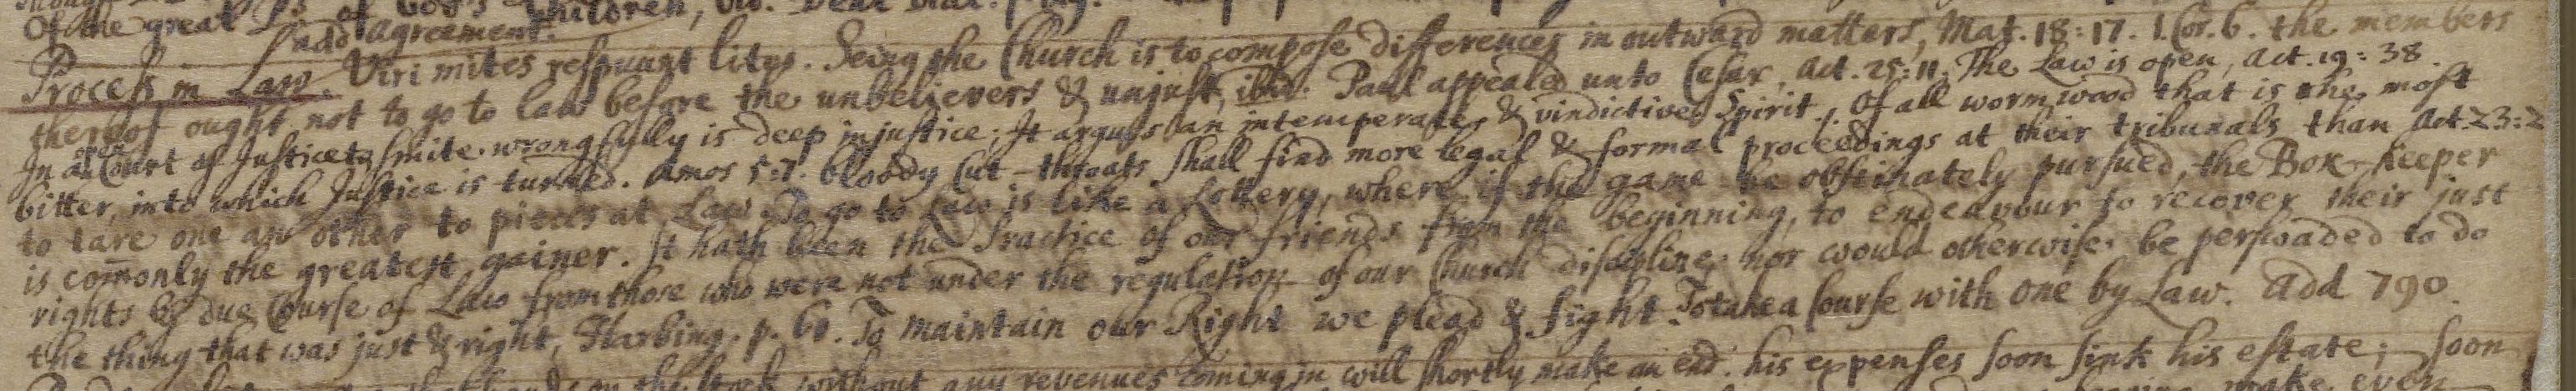 Of the great of God's Children,
add agreement.
Process in Law. Viri mites respuunt lites. Seing the Church is to compose differences in outward matters, Mat. 18:17. 1. Cor. 6. the members
thereof ought not to go to law before the unbelievers & unjust, ibid. Paul appealed unto Cesar, Act. 25:11. The Law is open, Act. 19:38.
In an open Court of Justice to smite wrongfully is deep injustice; It argues an intemperate & vindictive Spirit. Of all wormwood that is the most
bitter, into which Justice is turned. Amos 5:7. bloody Cut-throats shall find more legal & formal proceedings at their tribunals than Act. 23:2
to tare one an other to pieces at Law. To go to Law is like a Lottery, where if the game be obstinately pursued, the Box-keeper
is comonly the greatest gainer. It hath been the Practice of our friends from the beginning, to endeavour to recover their just
rights by due Course of Law from those who were not under the regulation of our Church discipline, nor would otherwise be perswaded to do
the thing that was just & right, p. 60. To maintain our Right we plead & fight. To take a Course with one by Law. Add 790.
on the stock without any revenues coming in will shortly make an end. his expenses soon sink his estate; soon